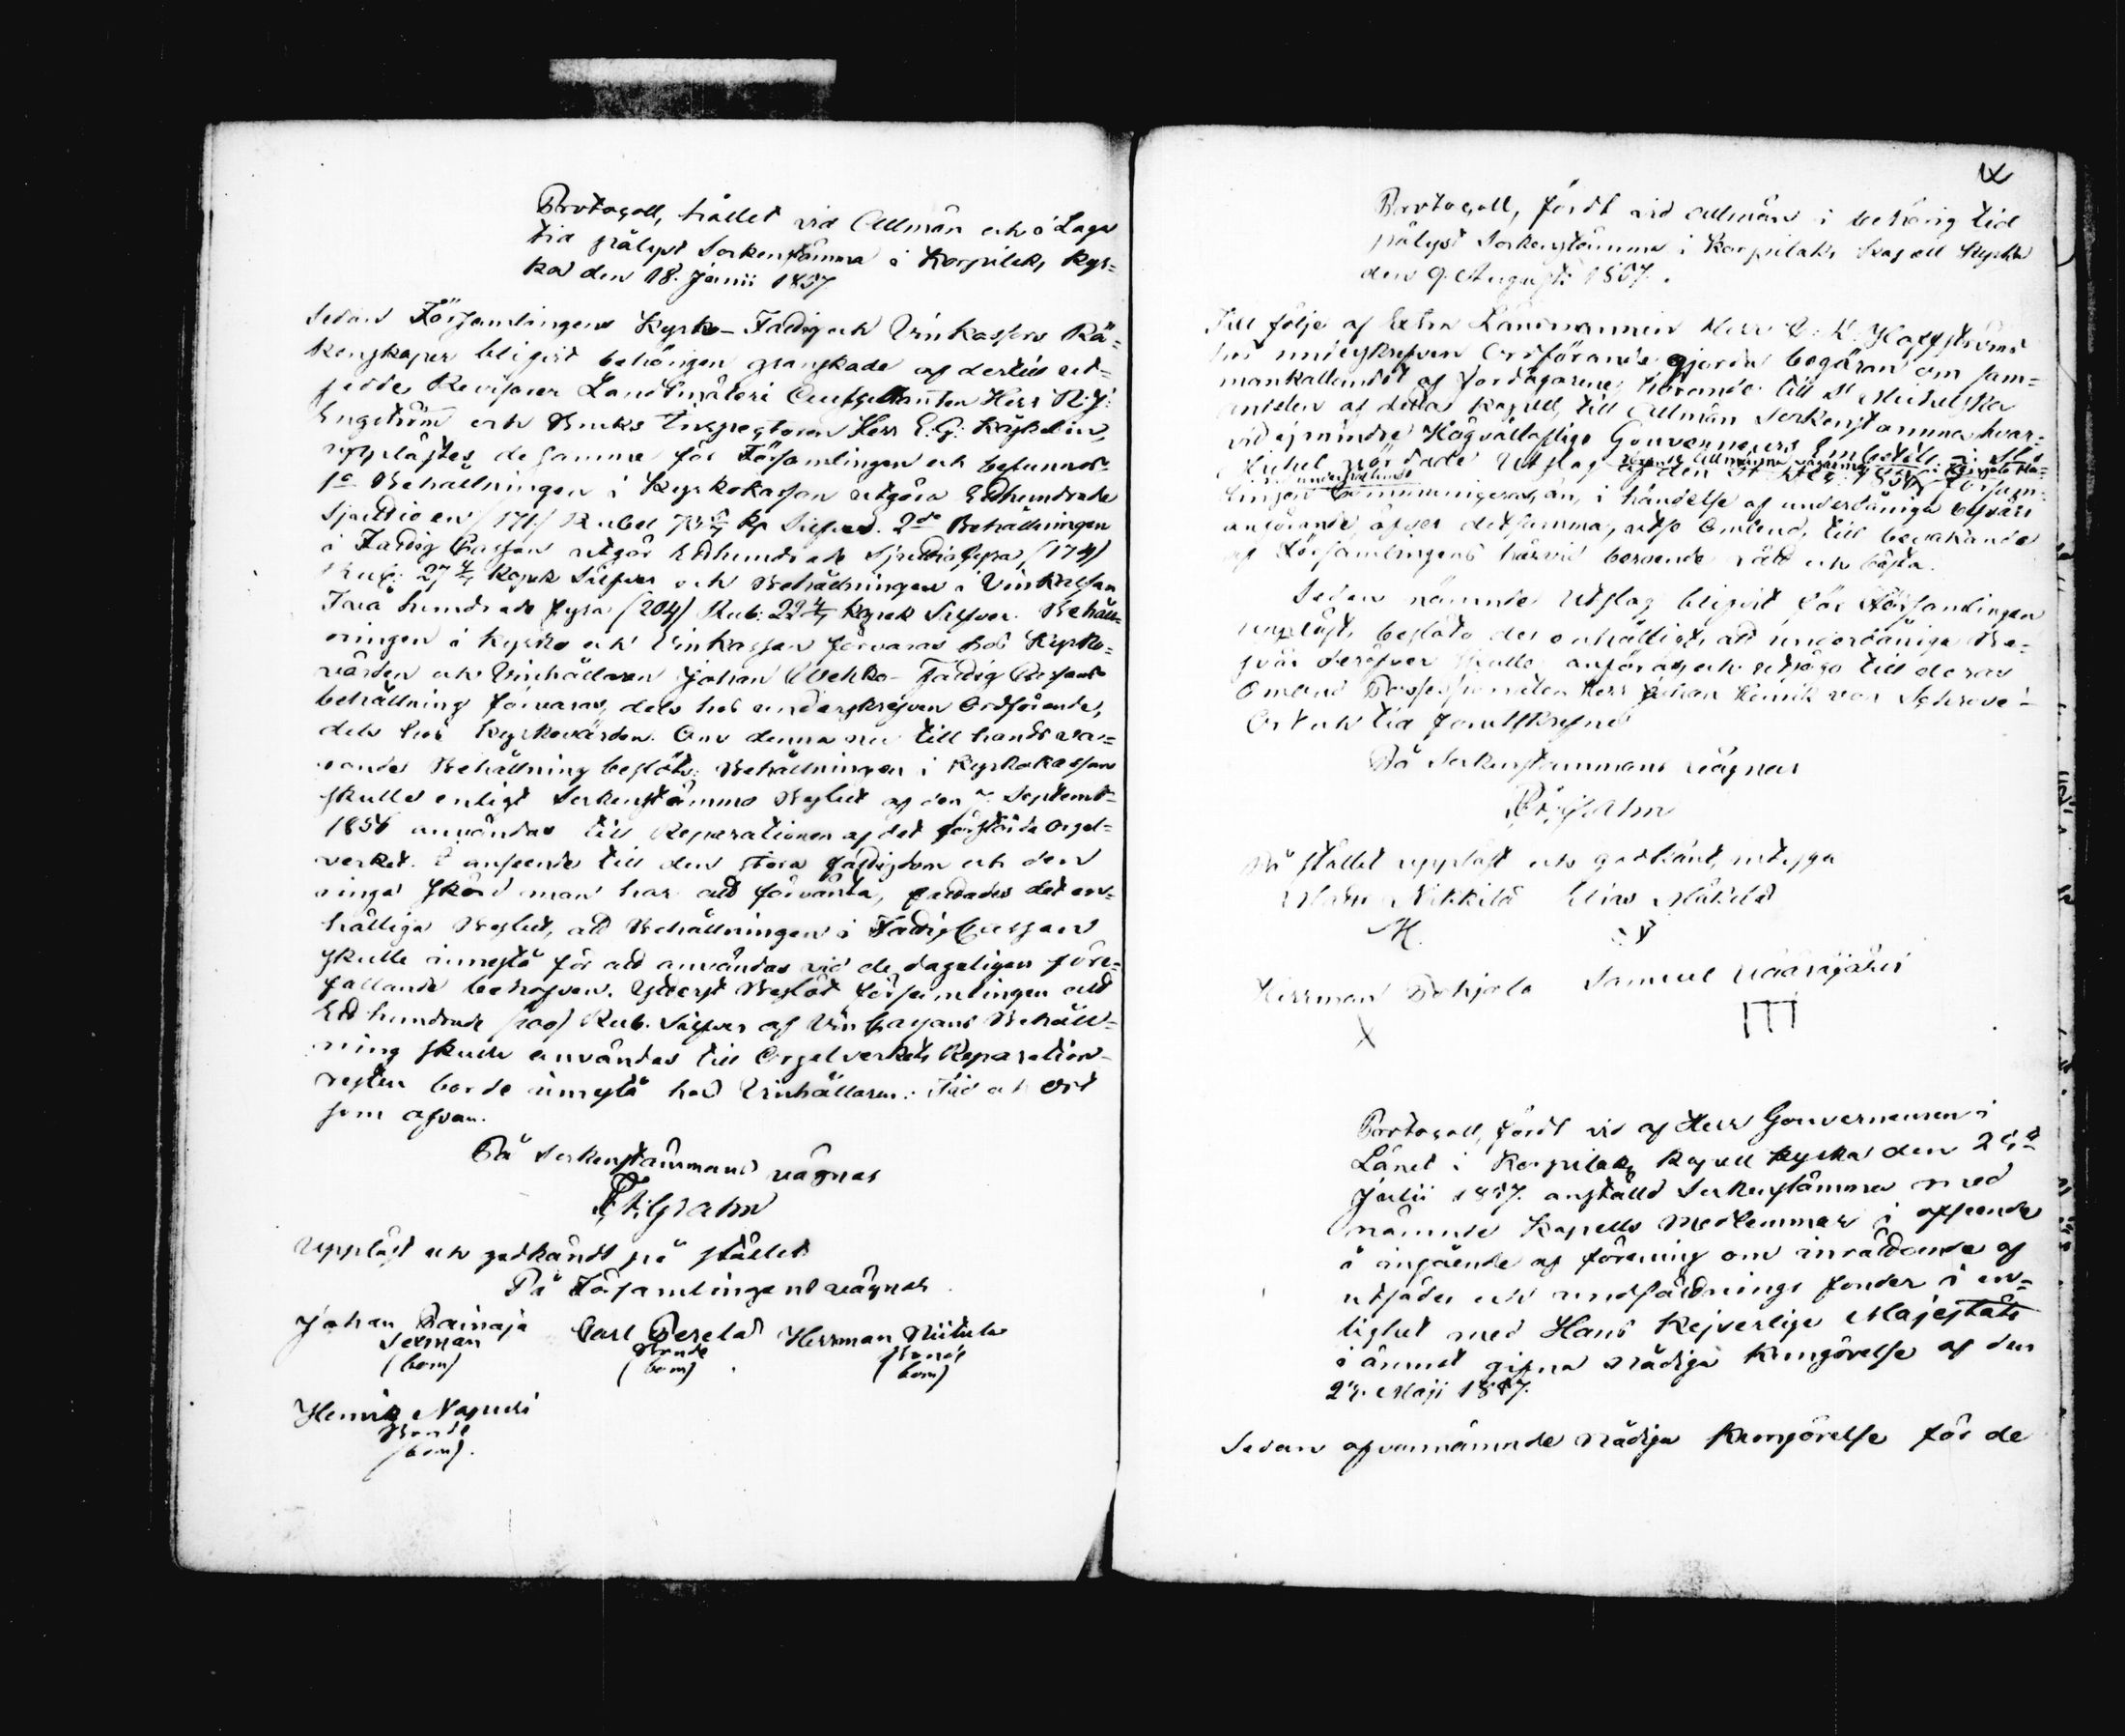 Protocoll, hållet vid Allmän och i Laga
tid pålyst Sockenstämma i Korpilaks Kyr=
ka den 18. Junii 1857
Sedan Församlingens Kyrko- Fattig och Vinkassors Rä=
kenskaper blifvit behörigen granskade af dertill ut=
sedde Revisorer Landtmäteri Auscultanten Herr
Engström och Bruks Inspectoren Herr E. G.
upplästes desamme för Församlingen och befunnos
1o Behållningen i Kyrkokassan utgöra Etthundrade
Sjuttioen (171) Rubel Kp Silfver. 2do Behållningen
i Fattig Cassan utgör Etthundrade Sjuttiofyra (174)
Rub: 27 4/7 Kopek Silfver och Behållningen i Vinkassan
Tvåhundrade fyra (204) Rub. 22 4/7 Kopek Silfver. Behåll=
ningen i Kyrko och Vinkassan förvaras hos Kyrko=
värden och Vinhållaren Johan Fattig Cassans
behållning förvaras, dels hos undertecknad Ordförande,
dels hos Kyrkovärden. Om denna nu till hands va=
rande Behållning beslöts: Behållningen i Kyrkokassan
skulle enligt Sockenstämmo Beslut af den 7. Septemb.
1856 användas till Reparationen af det förstörda Orgel=
verket. I anseende till den stora fattigdom och den
ringa skörd man har att förvänta, fattades det en=
hälliga Beslut, att Behållningen i Fattig Cassan
skulle innestå för att användas vid de dageligen före=
fallande behofven. Ytterst Beslöt församlingen att
Ett hundrade (100) Rub. Silfver af Vin Cassans Behåll=
ning skulle användas till Orgelverkets Reparation
resten borde innestå hos Vinhållaren. Tid och Ort
som ofvan.
På Sockenstämmans vägnar
Grahn
Uppläst och godkändt på stället
På Församlingens vägnar
Johan Painaja Carl Perälä Herrman Niitula
Sexman Bonde Bonde
(bom) (bom) (bom)
Henrik Napuri
Bonde
(bom).
Protocoll, fördt vid allmän i behörig tid
pålyst Sockenstämma i Korpilaks Kapell Kyrka
den 9. Augusti 1857.
Till följe af Extra Länsmannen Herr
hos underskrefven Ordförande gjorda begäran om sam=
mankallandet af Jordägarene, hörande till St Michelska
andelen af detta Kapell, till Allmän Sockenstämma hvar=
vid ej mindre Högvällofliga Gouverneurs Embetets i St
Michel Utslag af den 31 Församlingen
än, i händelse af underdåniga besvärs
anförande öfver detsamma, utse Ombud, till bevakande
af Församlingens härvid beroende rätt och bästa.
Sedan nämnde Utslag blifvit för Församlingen
uppläst, beslöts det enhälligt, att underdåniga Be=
svär deröfver skulle anföras, och utsågs till deras
Ombud Possessionaten Herr Johan Henrik von Schrowe.
Ort och tid förutskrefne
På Sockenstämmans vägnar
Grahn
På stället uppläst och godkänt, intyga
Nikkilä Elias Mäkelä
Herrman Pohjola Samuel
X
Protocoll, fördt vid af Herr Gouverneuren i
Länet i Korpilaks Kapell kyrka den
Julii 1857. anställd Sockenstämma med
nämnde Kapells Medlemmar i afseende
å ingående af förening om inrättande af
utsädes och undsättnings fonder i en=
lighet med Hans Kejserliga Majestäts
i ämnet gifna Nådiga Kungörelse af den
Maji 1857.
Sedan ofvannämnde Nådiga Kungörelse för de